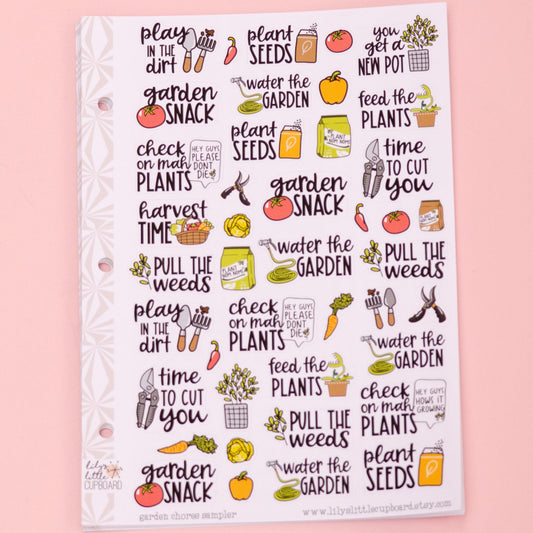 play
IN THE
dirt
plant
SEEDS
you
get a
NEW POT
garden
SNACK
water the
GARDEN
feed the
PLANTS
plant
SEEDS
PLANT
NOM NOMS
check
on mah
PLANTS
HEY GUYS
PLEASE
DONT
DIE
time
TO CUT
you
garden
SNACK
harvest
TIME
PLANT
NOM NOMS
water the
GARDEN
PULL THE
weeds
PULL THE
weeds
play
IN THE
dirt
check
on mah
PLANTS
HEY GUYS
PLEASE
DONT
DIE
water the
GARDEN
time
TO CUT
you
feed the
PLANTS
check
on mah
PLANTS
HEY GUYS
HOWS IT
GROWING
PULL THE
weeds
garden
SNACK
water the
GARDEN
plant
SEEDS
lily's
little
CUPBOARD
garden chores sampler
www.lilyslittlecupboard.etsy.com